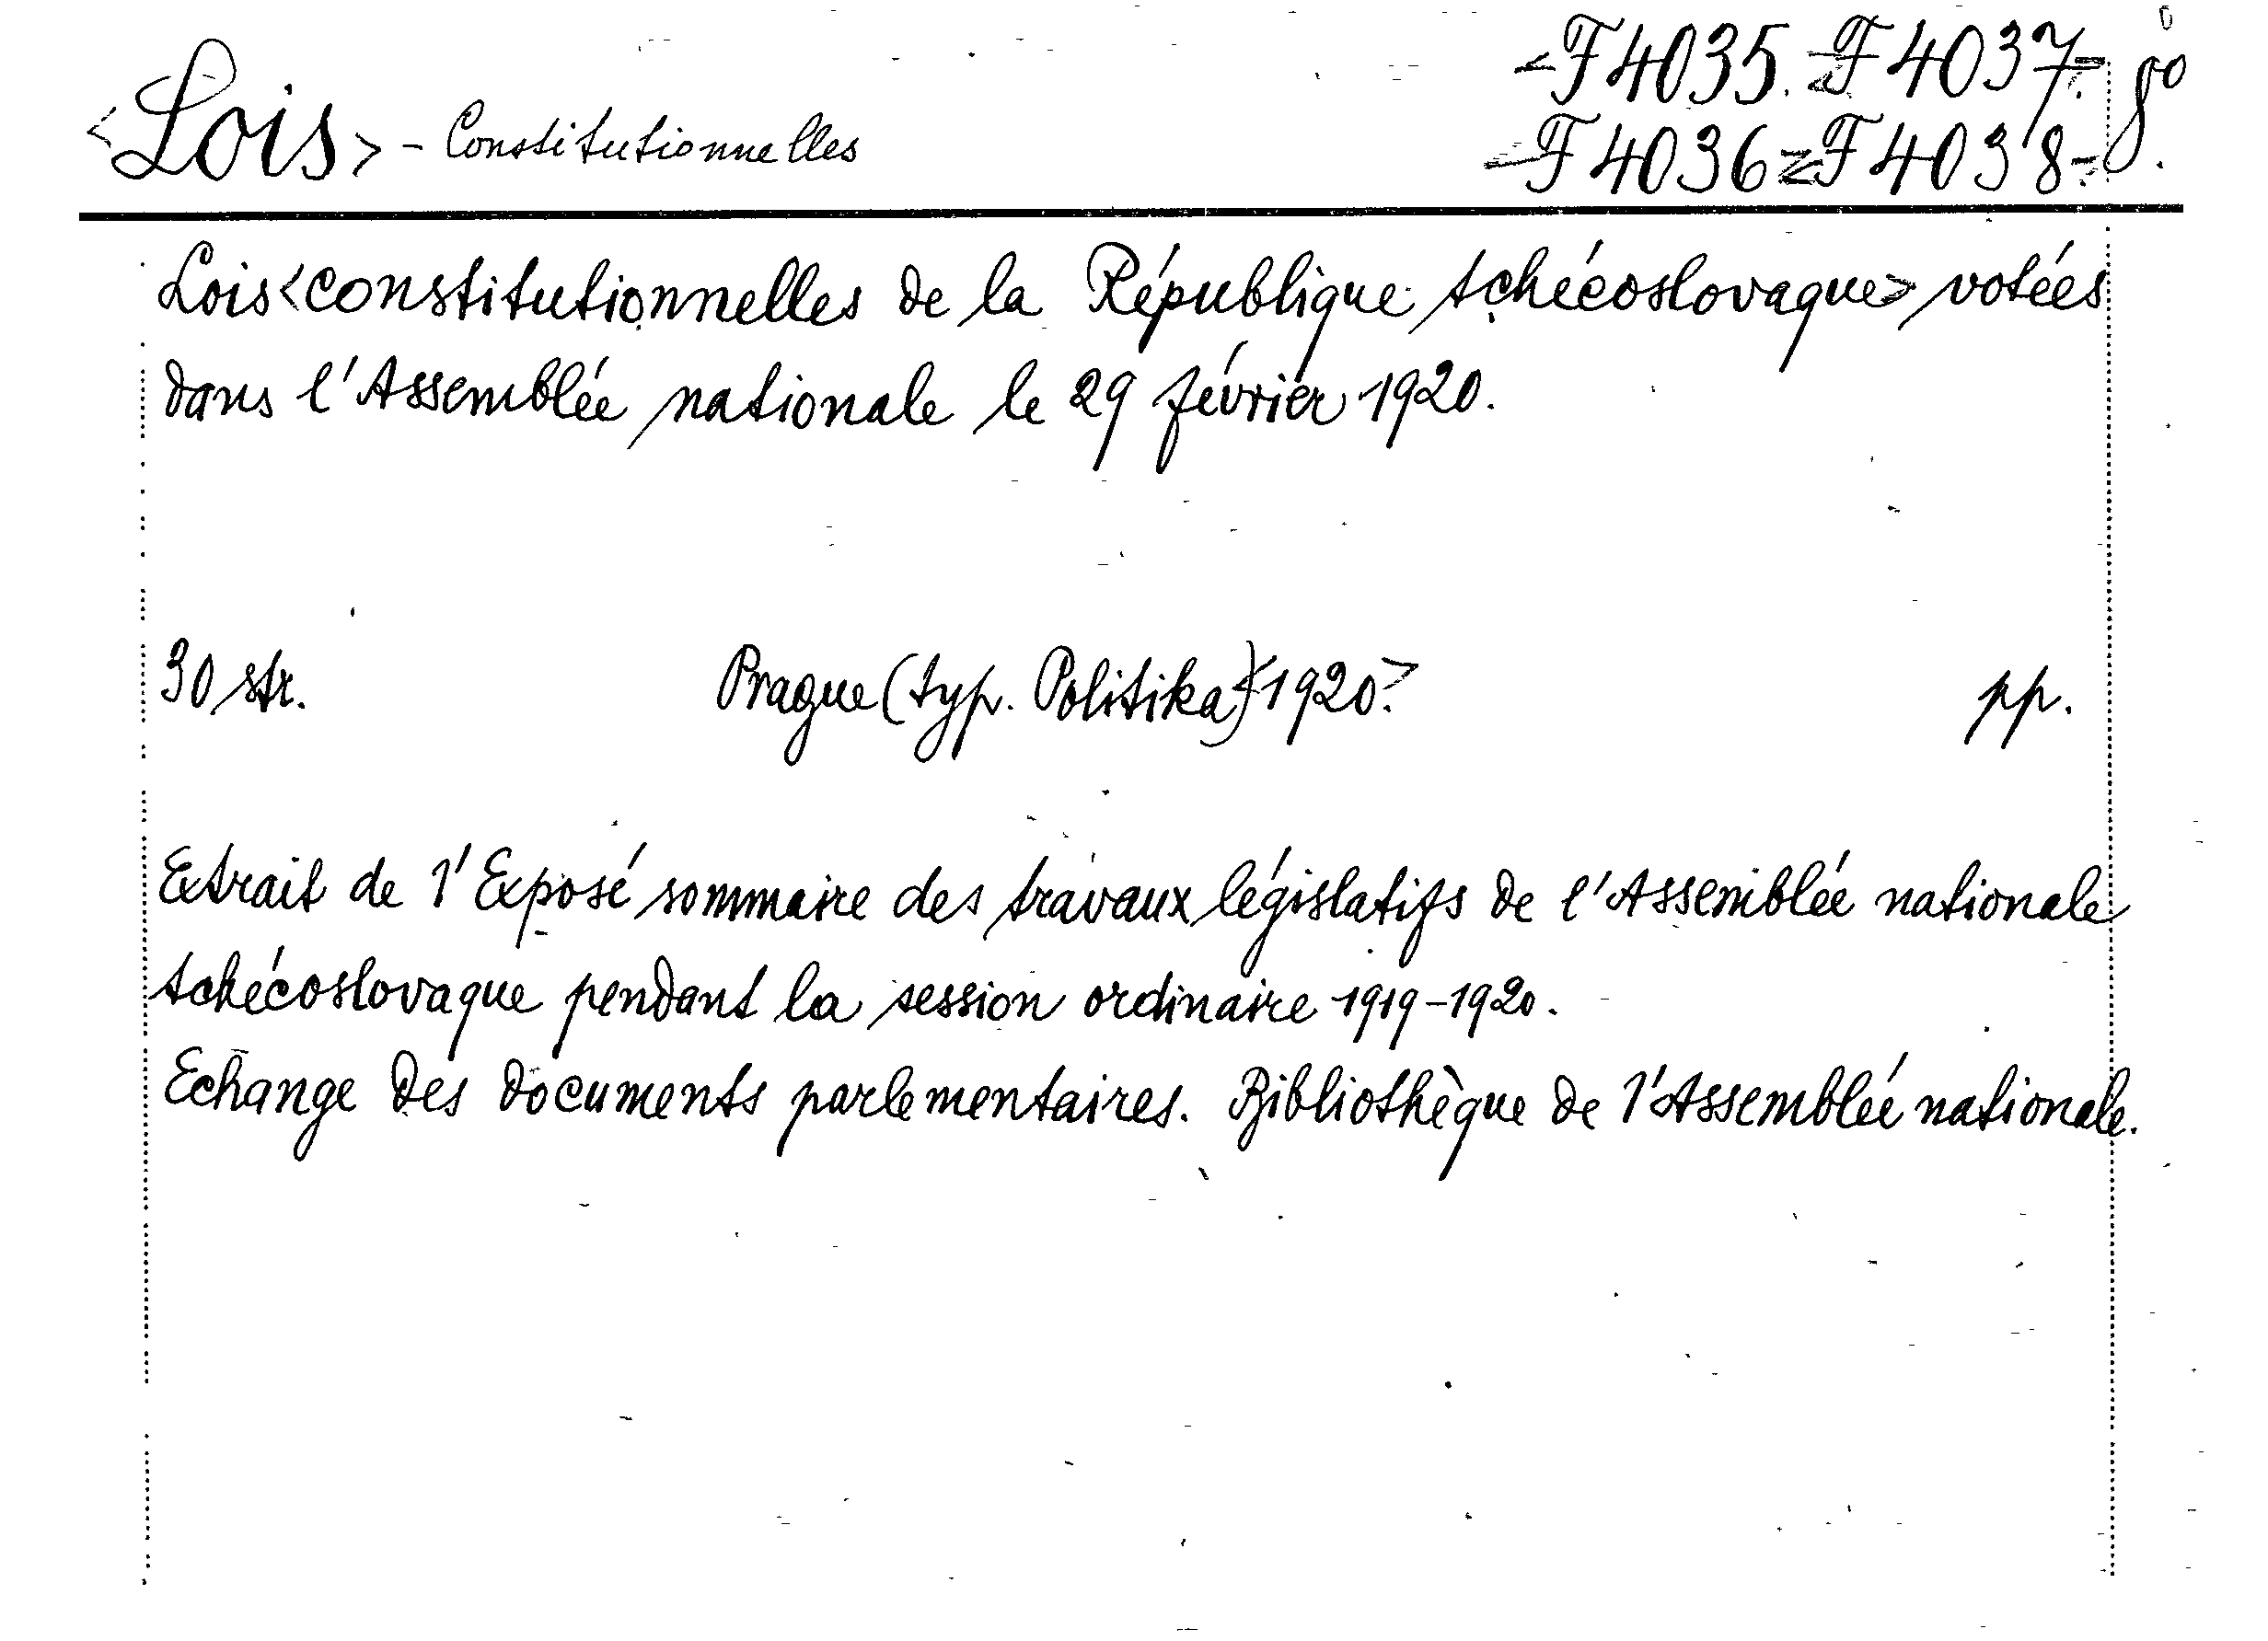 <F 4035. <F 4037> 8°
<Lois> - Constitutionnelles
<F 4036 = F 4038>
Lois <constitutionnelles de la République tchécoslovaque> votées
dans l'Assemblée nationale le 29 février 1920.
30 str. Prague (typ. Politika) <1920.> pp.
Extrait de l'Exposé sommaire des travaux législatifs de l'Assemblée nationale
tchécoslovaque pendant la session ordinaire 1919-1920.
Echange des documents parlementaires. Bibliothèque de l'Assemblée nationale.